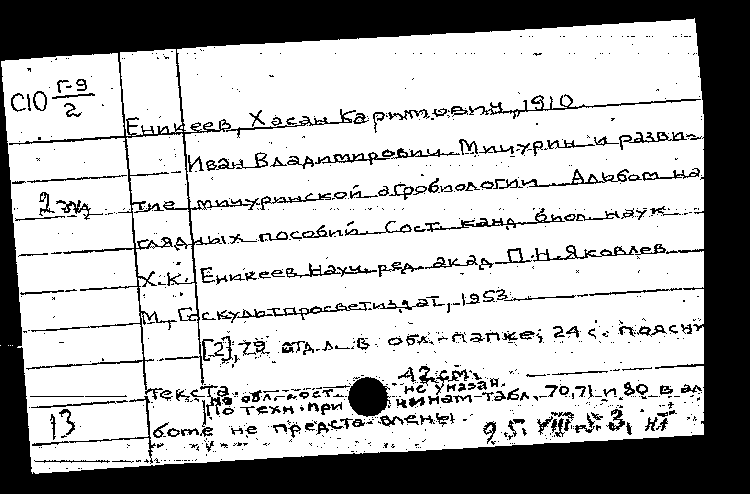 С10 Г-9/2
Еникеев, Хасан Каримович, 1910
Иван Владимирович Мичурин и разви-
2 экз
тие мичуринской агробиологии. Альбом на
глядных пособий. Сост. канд. биол. наук
Х.К. Еникеев. Науч. ред. акад. П.Н. Яковлев
М., Госкультпросветиздат, 1953.
[2], 78 отд. л. в обл.-папке; 24 с. поясн
42 см.
текста
На обл. сост. не указан.
По техн. причинам табл. 70, 71 и 80 в ал
13
боте не представлены.
25. VIII. 53.